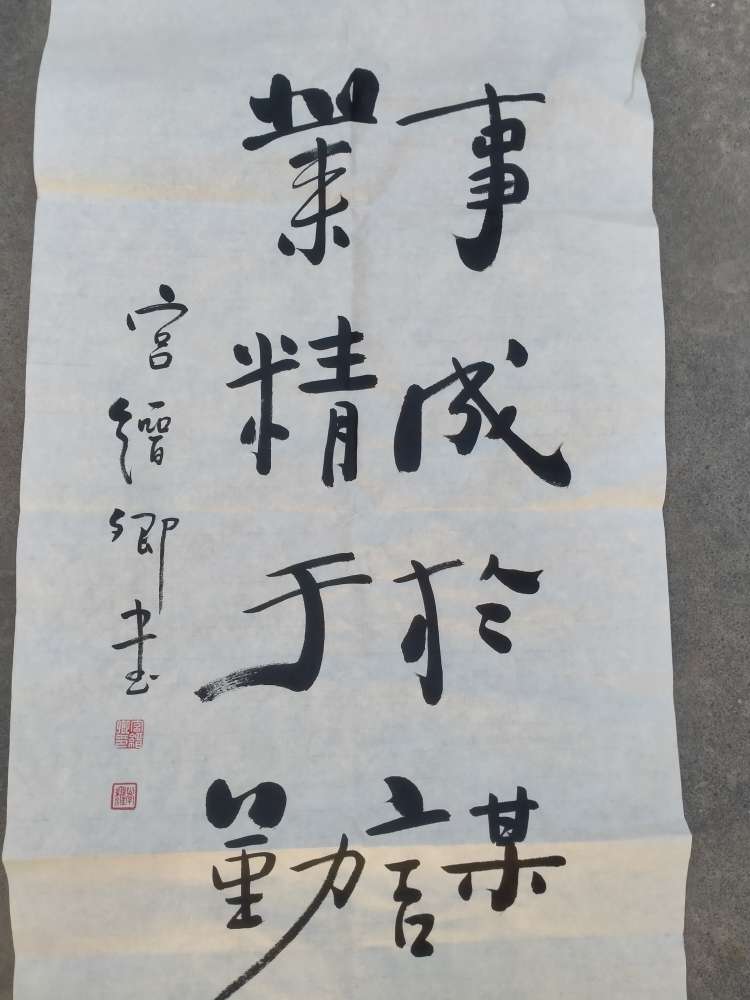 事成於謀
業精于勤
宮縉卿書